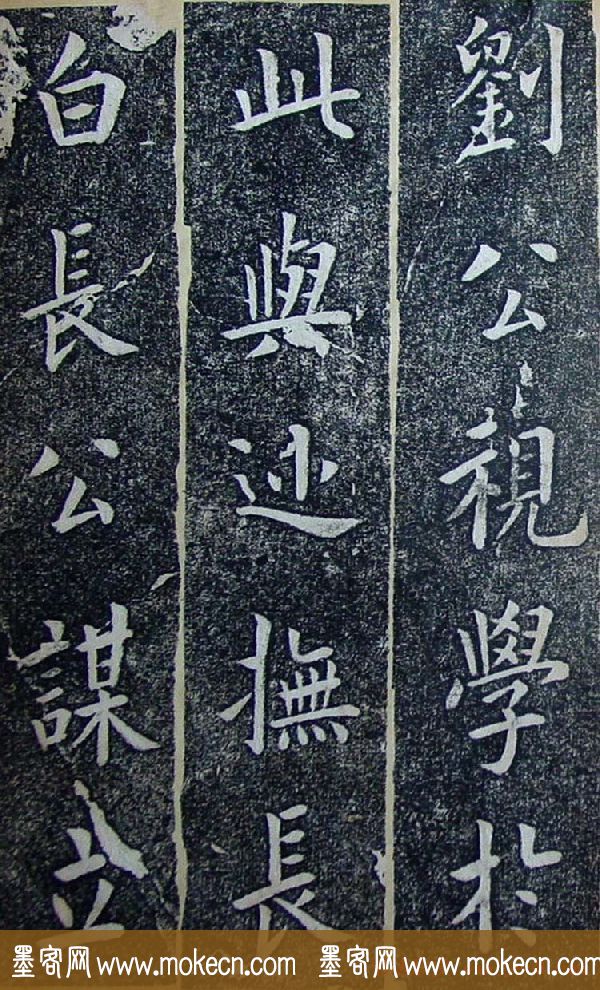 劉公視學於
此與迩撫長
白長公謀立
墨客网 www.mokecn.com 墨客网 www.mokecn.com